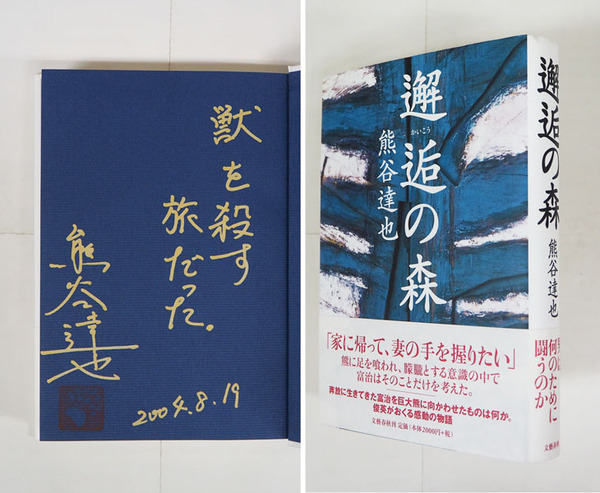 獣を殺す
旅だった。
熊谷達也
2004.8.19
邂逅の森
かいこう
熊谷達也
「家に帰って、妻の手を握りたい」
熊に足を喰われ、朦朧とする意識の中で
富治はそのことだけを考えた。
奔放に生きてきた富治を巨大熊に向かわせたものは何か。
俊英がおくる感動の物語
文藝春秋刊 定価(本体2000円+税)
邂逅の森
熊谷達也
何のために
闘うのか
文藝春秋